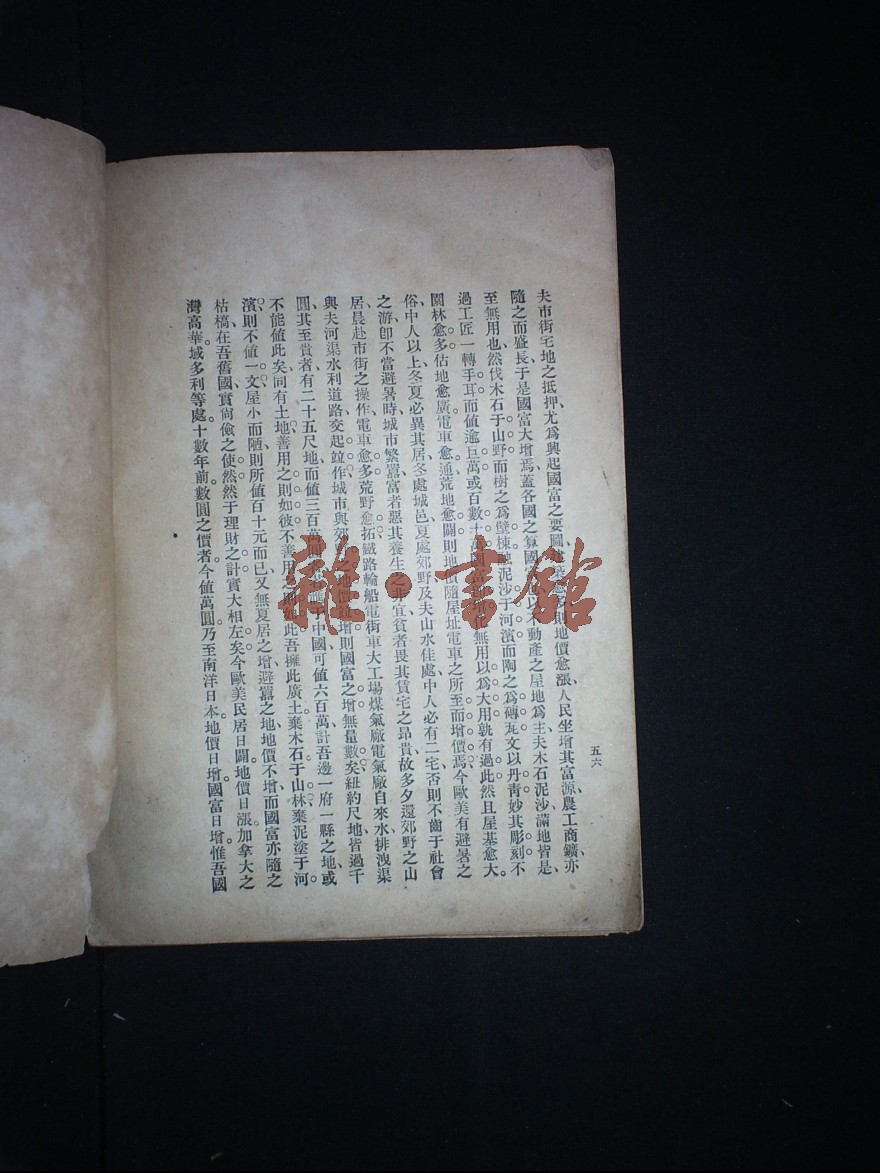 夫市街宅地之抵押、尤爲興起國富之要圖、則地價愈漲、人民坐增其富源、農工商鑛、亦
隨之而盛長、于是國富大增焉、蓋各國之算國以不動產之屋地爲主、夫木石泥沙、滿地皆是、
至無用也、然伐木石于山野、而樹之爲壁棟、泥沙于河濱、而陶之爲磚瓦、文以丹靑、妙其彫刻、不
過工匠一轉手耳、而値逾巨萬或百數十萬、無用以爲大用、孰有過此、然且屋基愈大、
園林愈多、佔地愈廣、電車愈通、荒地愈闢、則地價隨屋址電車之所至而增價焉、今歐美有避暑之
俗、中人以上、冬夏必異其居、冬處城邑、夏處郊野、及夫山水佳處、中人必有二宅、否則不齒于社會
之游、卽不當避暑時、城市繁囂、富者惡其養生之非宜、貧者畏其賃宅之昂貴、故多夕還郊野之山
居、晨赴市街之操作、電車愈多、荒野愈拓、鐵路輪船電街車大工場煤氣廠電氣廠自來水排洩渠
與夫河渠水利道路交起竝作、城市與郊之地價增、則國富之增無量數矣、紐約尺地皆過千
圓、其至貴者、有二十五尺地而値三百萬中國可値六百萬、計吾邊一府一縣之地、或
不能値此矣、同有土地、善用之則如彼、不善用之此、吾擁此廣土、棄木石于山林、棄泥塗于河
濱、則不値一文、屋小而陋、則所値百十元而已、又無夏居之增、避囂之地、地價不增、而國富亦隨之
枯槁、在吾舊國實尙儉之使然、然于理財之計、實大相左矣、今歐美民居日闢、地價日漲、加拿大之
灣高華域多利等處、十數年前數圓之價者、今値萬圓、乃至南洋日本地價日增、國富日增、惟吾國
五六
雜·書館